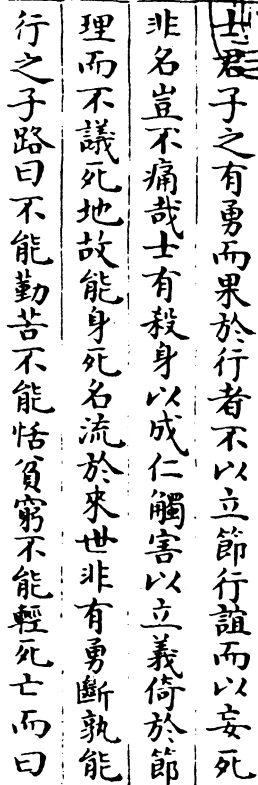 士君子之有勇而果於行者不以立節行誼而以妄死
非名豈不痛哉士有殺身以成仁觸害以立義倚於節
理而不議死地故能身死名流於來世非有勇斷孰能
行之子路曰不能勤苦不能恬貧窮不能輕死亡而曰